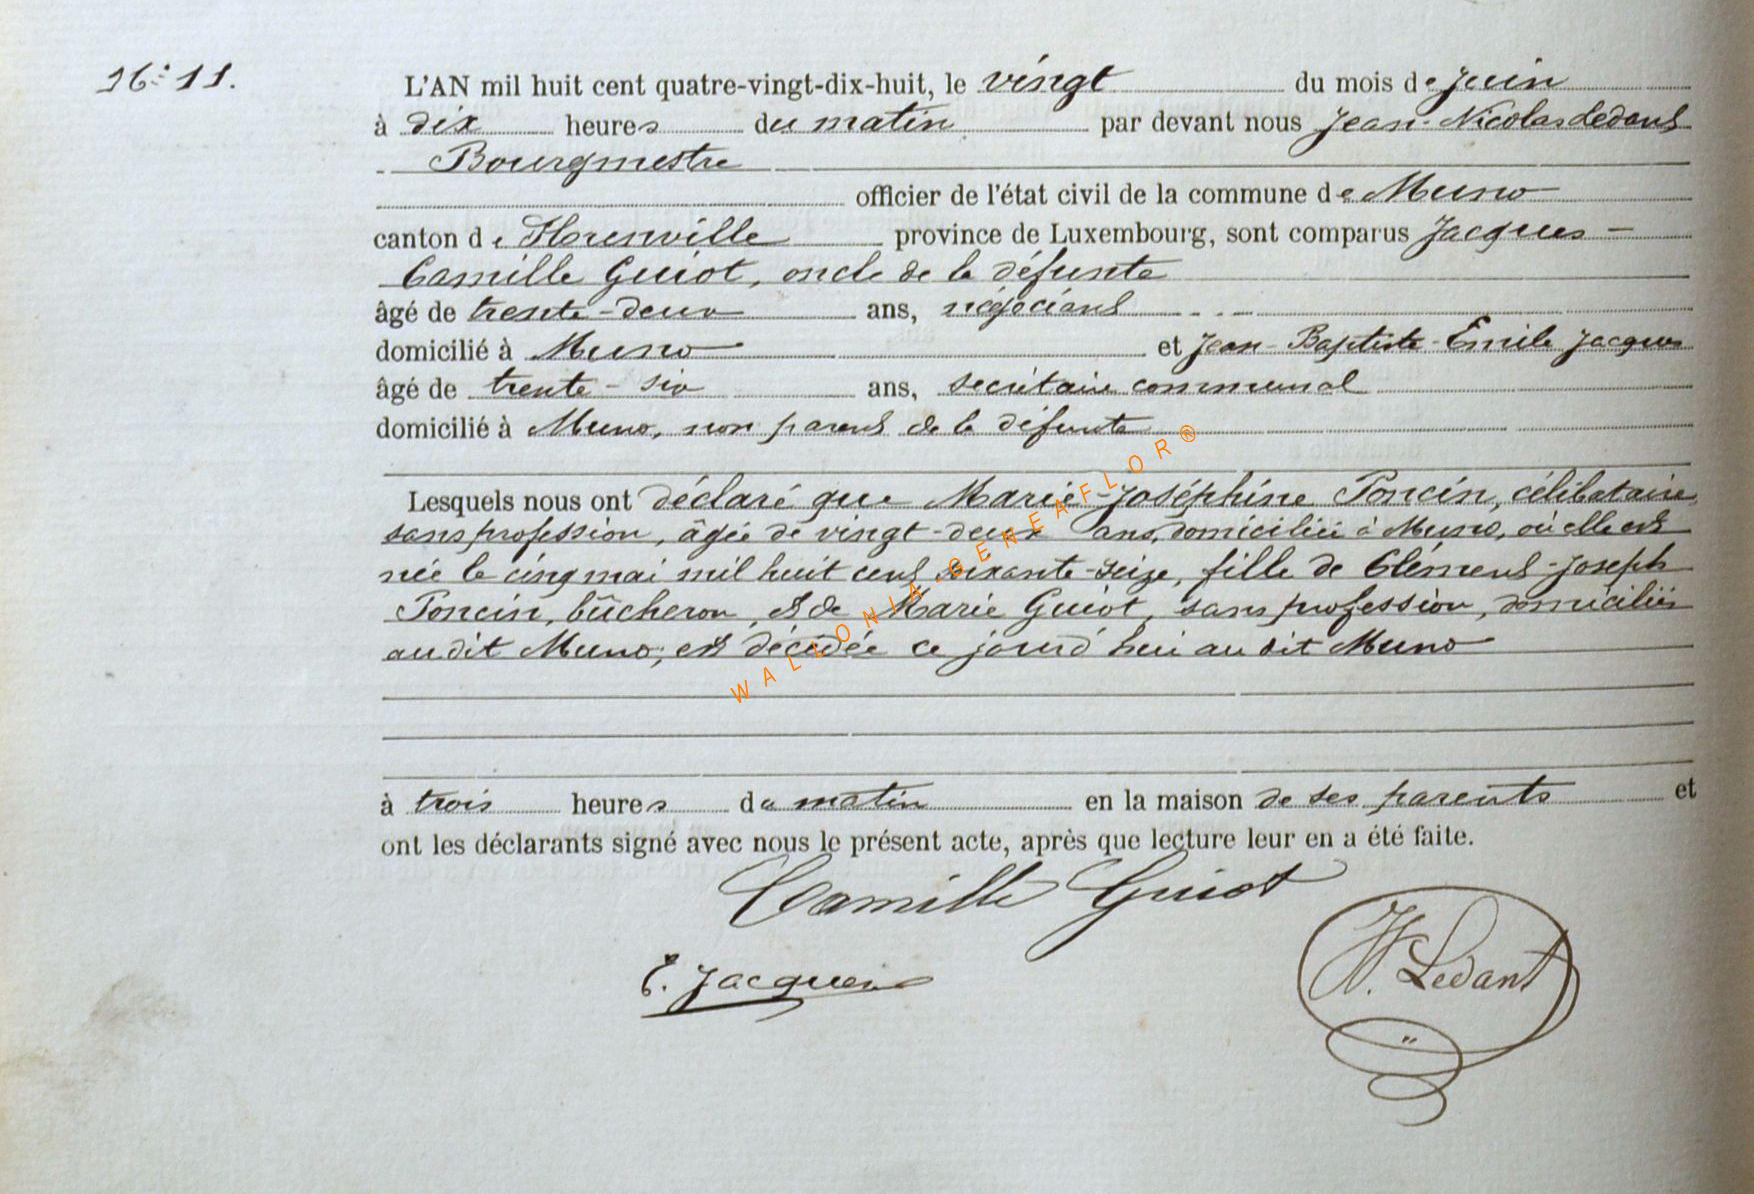 N° 11.
L'AN mil huit cent quatre-vingt-dix-huit, le vingt du mois de juin
à dix heures du matin par devant nous Jean-Nicolas Ledant
Bourgmestre
officier de l'état civil de la commune de Muno
canton de Florenville province de Luxembourg, sont comparus Jacques-
Camille Guiot, oncle de la défunte
âgé de trente-deux ans, négociant
domicilié à Muno et Jean-Baptiste-Emile Jacques
âgé de trente-six ans, secrétaire communal
domicilié à Muno, non parent de la défunte
Lesquels nous ont déclaré que Marie-Joséphine Poncin, célibataire,
sans profession, âgée de vingt-deux ans, domiciliée à Muno, où elle est
née le cinq mai mil huit cent soixante-seize, fille de Clément-Joseph
Poncin, bûcheron, et de Marie Guiot, sans profession, domiciliés
au dit Muno, est décédée ce jourd'hui au dit Muno
à trois heures du matin en la maison de ses parents et
ont les déclarants signé avec nous le présent acte, après que lecture leur en a été faite.
Camille Guiot
E. Jacques
N. Ledant
WALLONIA.GENEAFLOR®